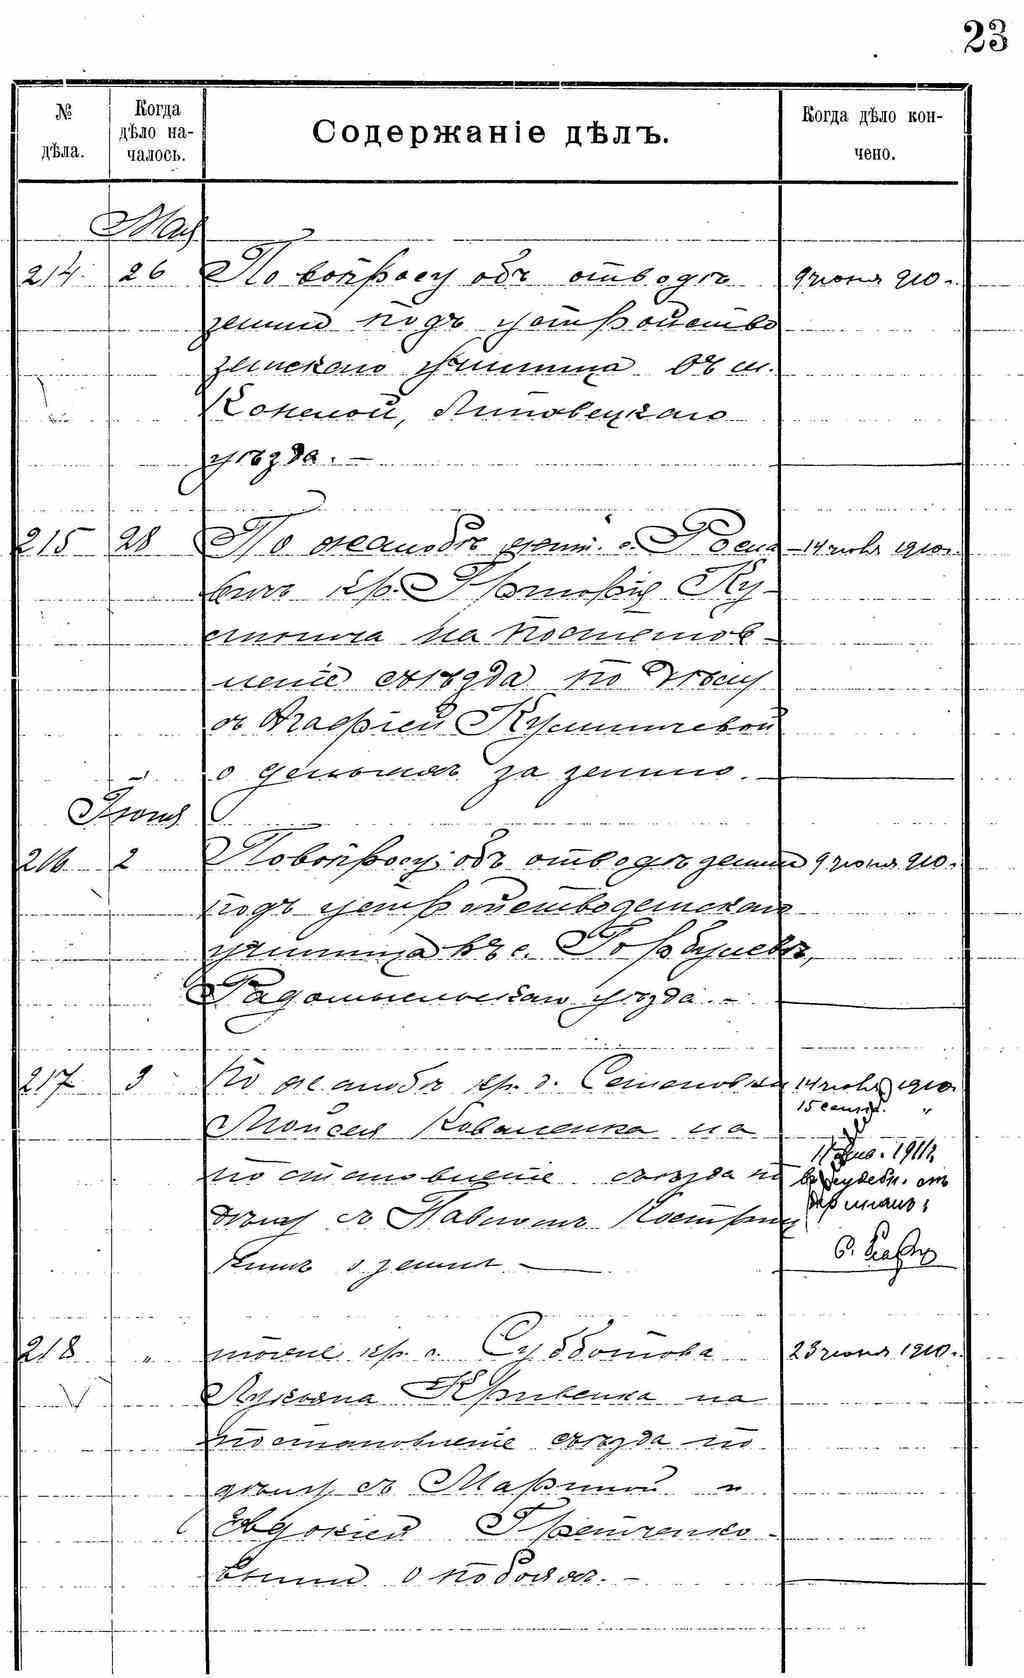 23
№ дѣла.
Когда дѣло началось.
Содержаніе дѣлъ.
Когда дѣло кончено.
Мая
214. 26 По вопросу объ отводѣ 9 іюня 910.
земли подъ устройство
земскаго училища въ м.
Конелой, Липовецкаго
уѣзда. —
215 28 По жалобѣ с. Росла- 14 1910.
вичъ кр. Григорія Ку-
на постанов-
леніе съѣзда по дѣлу
съ Агафіей
о деньгахъ за землю. —
Іюня
216 2 По вопросу объ отводѣ земли 9 іюня 910.
подъ устройство земскаго
училища въ с. Горбулевѣ,
Радомысльскаго уѣзда. —
217 3 По жалобѣ кр. д. Семеновки 14 1910
15 сент. "
Моисея Коваленка на
постановленіе съѣзда по 1911 г.
дѣлу съ Павломъ
о землѣ —
218 " тоже кр. с. Субботова 23 іюня 1910.
Лукьяна Кривенка на
постановленіе съѣзда по
дѣлу съ Мариной и
Евдокіей Гретченко-
выми о побояхъ. —